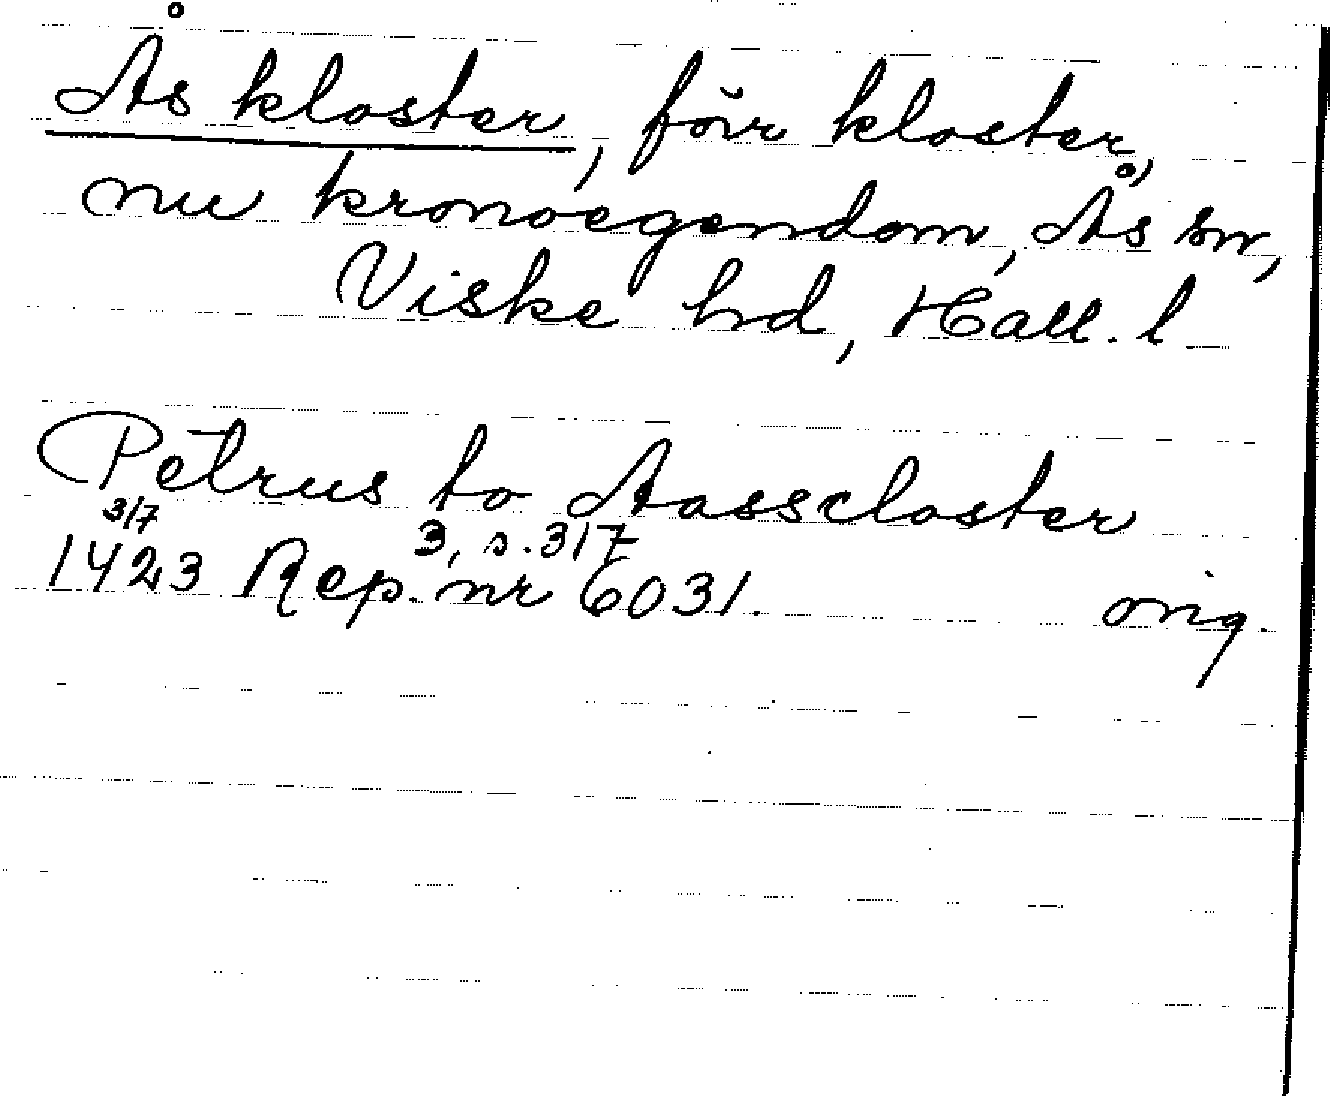 Ås kloster, förr kloster,
nu kronoegendom, Ås sn,
Viske hd, Hall. l
Petrus to Aasscloster
3/7
3, s. 317
1423 Rep. nr 6031. orig.